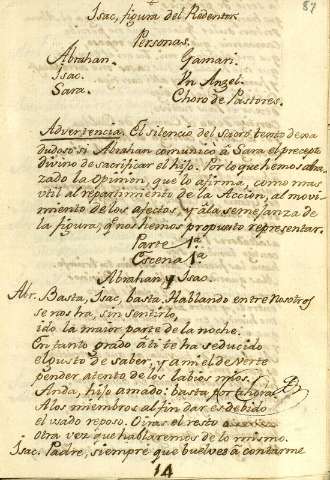 87
Isac, figura del Redentor.
Personas.
Abrahan. Gamari.
Isac. Un Angel.
Sara. Choro de Pastores.
Advertencia. El silencio del Sacro texto dexa
dudoso si Abrahan comunicò à Sara el precepto
divino de sacrificar el hijo. Por lo que hemos abra-
zado la Opinion, que lo afirma, como mas
vtil al repartimiento de la Accion, al movi-
miento de los afectos, y à la semejanza de
la figura, q nos hemos propuesto representar.
Parte 1ª
Escena 1ª
Abrahan y Isac.
Abr. Basta, Isac, basta. Hablando entre Nosotros
se nos ha, sin sentirlo,
ido la maior parte de la noche.
En tanto grado à ti te ha seducido
el gusto de saber, y a mi el de verte
pender atento de los labios mios.
Anda, hijo amado: basta por ahora.
A los miembros al fin dar es debido
el usado reposo. Oiras el resto
otra vez que hablaremos de lo mismo.
Isac. Padre, siempre que buelves à contarme